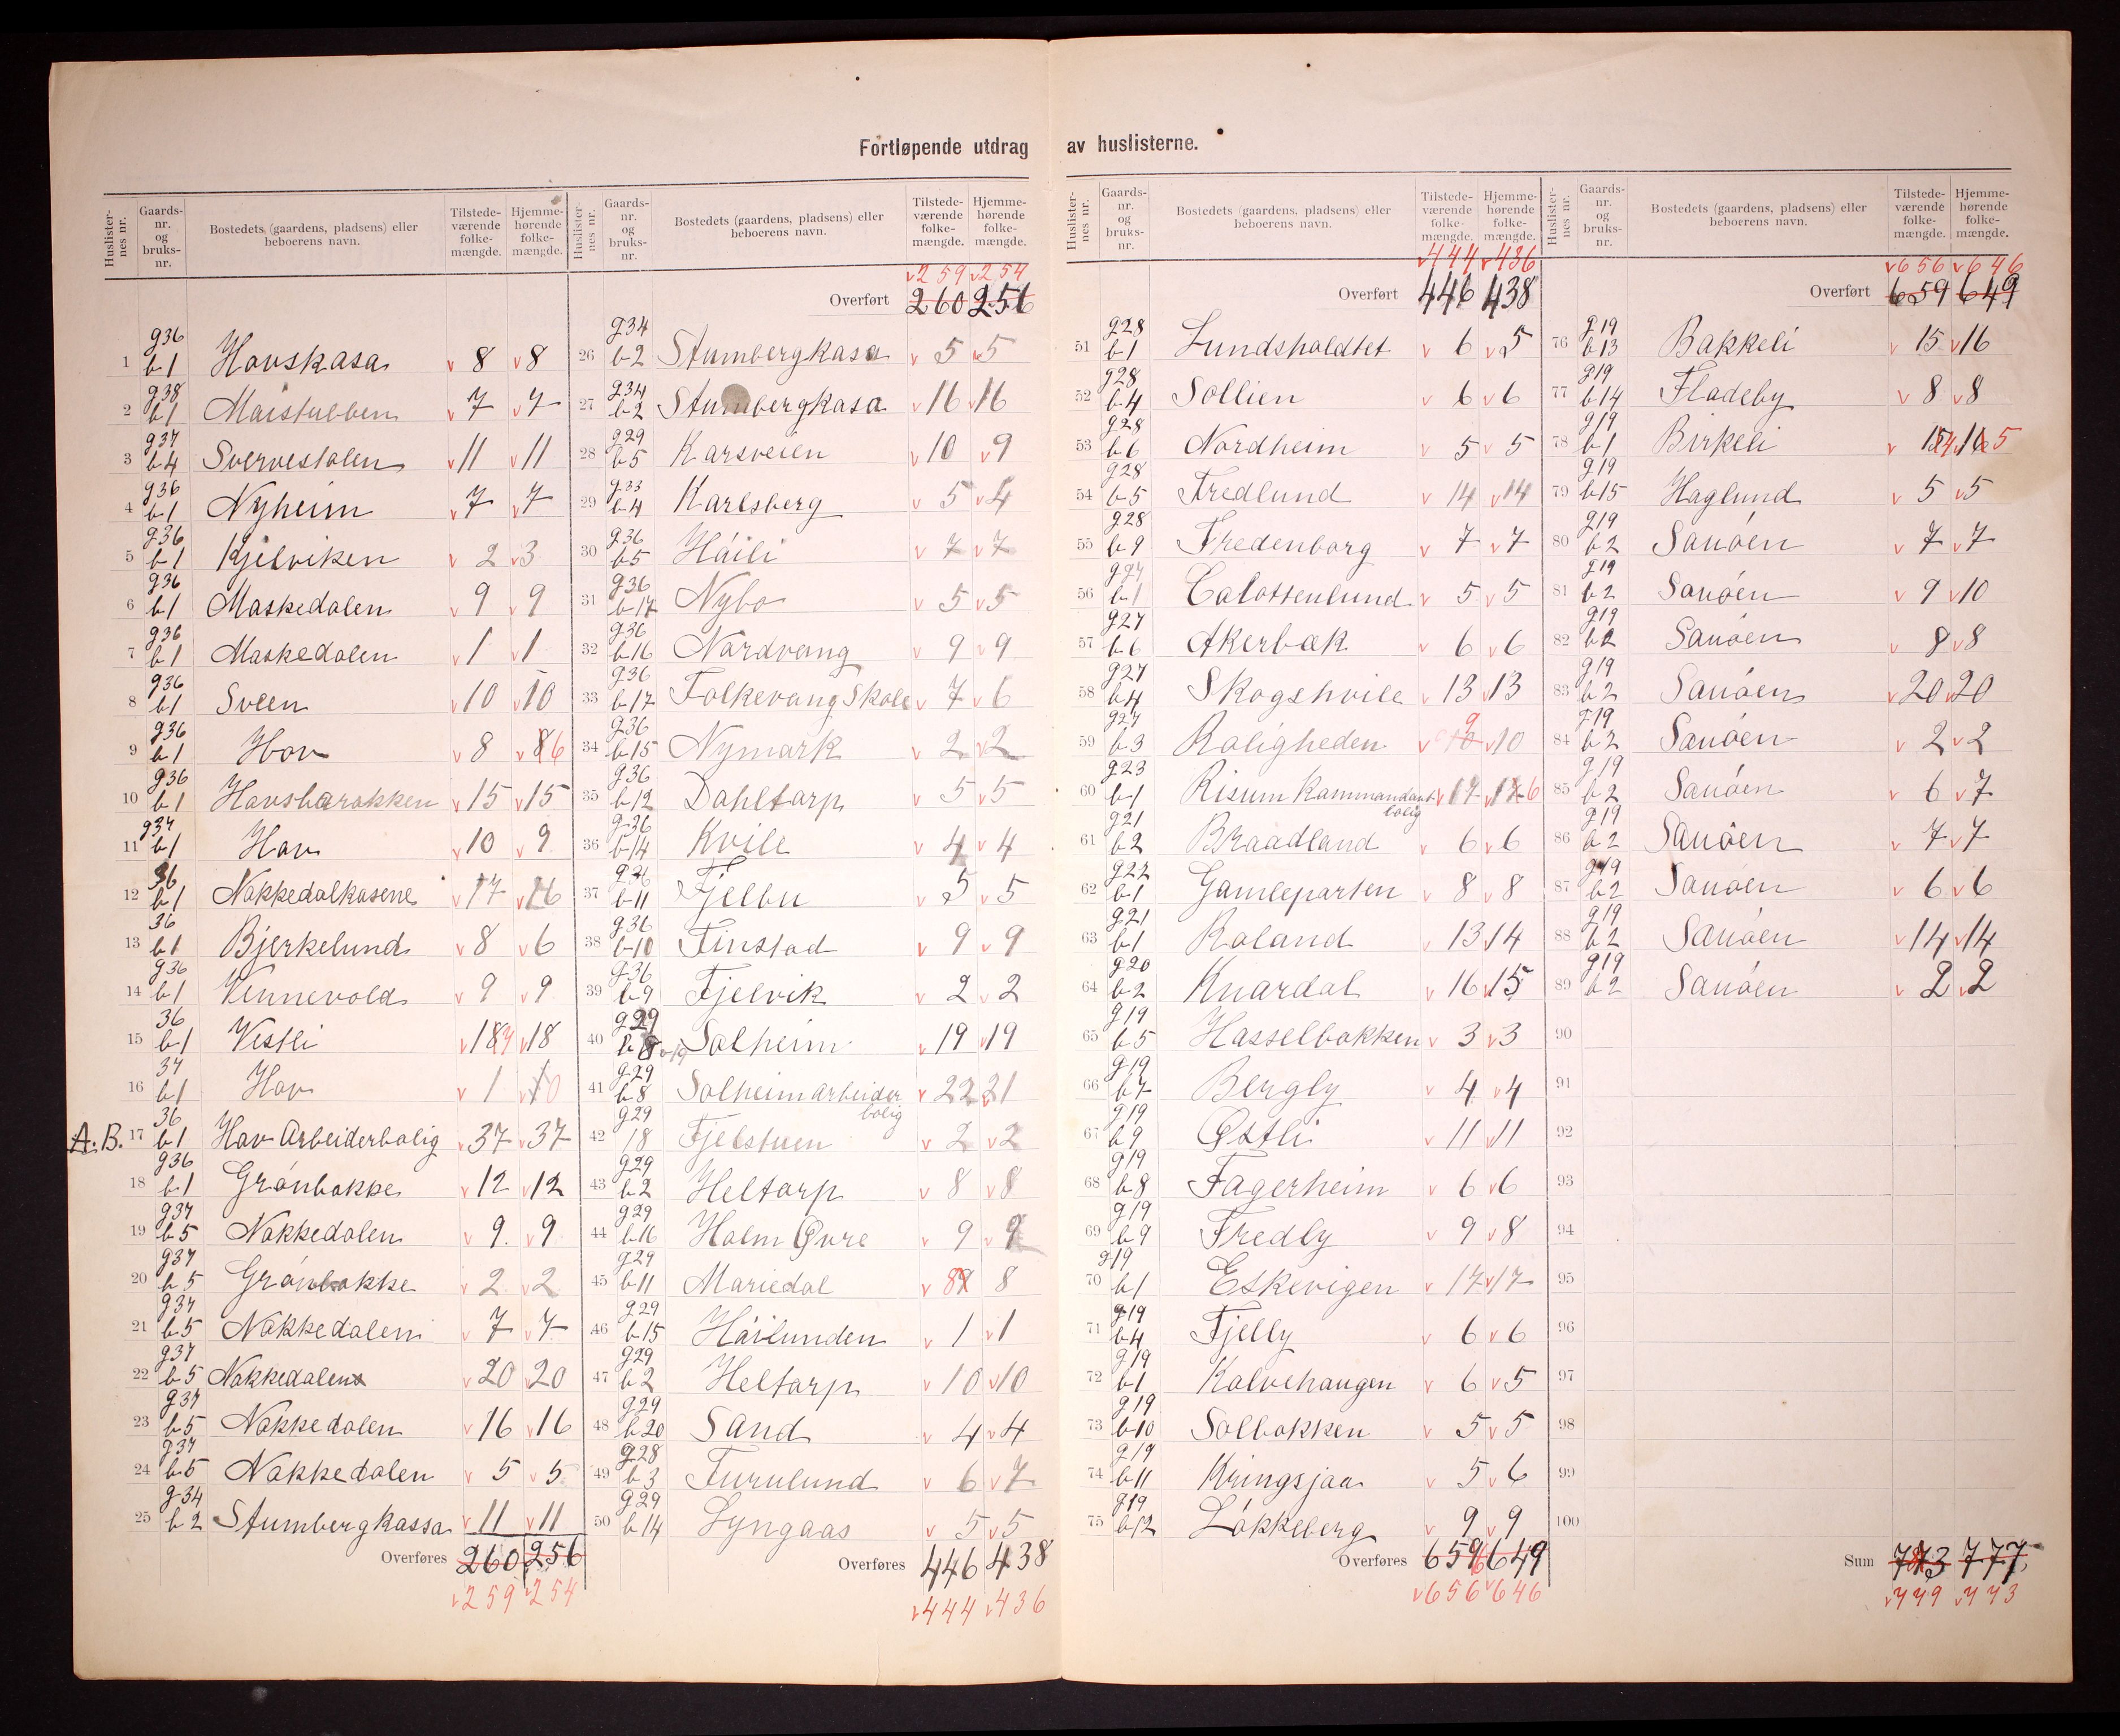 Fortløpende utdrag av huslisterne.
Huslister-nes nr. Gaards-nr. og bruks-nr. Bostedets (gaardens, pladsens) eller beboerens navn. Tilstede-værende folke-mængde. Hjemme-hørende folke-mængde.
1 g36 b1 Hovskasa v 8 v 8
2 g38 b1 Maistubben v 7 v 7
3 g37 b4 Svervestolen v 11 v 11
4 g36 b1 Nyheim v 7 v 7
5 g36 b1 Kjelviken v 2 v 3
6 g36 b1 Maskedalen v 9 v 9
7 g36 b1 Maskedalen v 1 v 1
8 g36 b1 Sveen v 10 v 10
9 g36 b1 Hov v 8 v 8 6
10 g36 b1 Hovsbarakken v 15 v 15
11 g37 b1 Hov v 10 v 9
12 36 b1 Nakkedalkasene v 17 v 16
13 36 b1 Bjerkelund v 8 v 6
14 g36 b1 Vennevold v 9 v 9
15 36 b1 Vestli v 18 7 v 18
16 37 b1 Hov v 1 v 0
A.B. 17 36 b1 Hov Arbeiderbolig v 37 v 37
18 g36 b1 Grønbakke v 12 v 12
19 g37 b5 Nakkedalen v 9 v 9
20 g37 b5 Grønbakke v 2 v 2
21 g37 b5 Nakkedalen v 7 v 7
22 g37 b5 Nakkedalen v 20 v 20
23 g37 b5 Nakkedalen v 16 v 16
24 g37 b5 Nakkedalen v 5 v 5
25 g34 b2 Stumbergkassa v 11 v 11
Overføres 260 256
v 259 v 254
Huslister-nes nr. Gaards-nr. og bruks-nr. Bostedets (gaardens, pladsens) eller beboerens navn. Tilstede-værende folke-mængde. Hjemme-hørende folke-mængde.
v 259 v 254
Overført 260 256
26 g34 b2 Stumbergkasa v 5 v 5
27 g34 b2 Stumbergkasa v 16 v 16
28 g29 b5 Karsveien v 10 v 9
29 g33 b4 Karlsberg v 5 v 4
30 g36 b5 Håili v 7 v 7
31 g36 b17 Nybo v 5 v 5
32 g36 b16 Nordvang v 9 v 9
33 g36 b17 Folkevang Skole v 7 v 6
34 g36 b15 Nymark v 2 v 2
35 g36 b12 Dahltorp v 5 v 5
36 g36 b14 Kvile v 4 v 4
37 g36 b11 Fjelbu v 5 v 5
38 g36 b10 Finstad v 9 v 9
39 g36 b9 Fjelvik v 2 v 2
40 g29 b8 Solheim v 19 v 19
41 g29 b8 Solheim arbeiderbolig v 22 v 21
42 g29 18 Fjelstuen v 2 v 2
43 g29 b2 Heltorp v 8 v 8
44 g29 b16 Holm Øvre v 9 v 9
45 g29 b11 Mariedal v 8 8
46 g29 b15 Håilunden v 1 v 1
47 g29 b2 Heltorp v 10 v 10
48 g29 b20 Sand v 4 v 4
49 g28 b3 Furulund v 6 v 7
50 g29 b14 Lyngaas v 5 v 5
Overføres 446 438
v 444 v 436
Huslister-nes nr. Gaards-nr. og bruks-nr. Bostedets (gaardens, pladsens) eller beboerens navn. Tilstede-værende folke-mængde. Hjemme-hørende folke-mængde.
v 444 v 436
Overført 446 438
51 g28 b1 Lundsholdtet v 6 v 5
52 g28 b4 Sollien v 6 v 6
53 g28 b6 Nordheim v 5 v 5
54 g28 b5 Fredlund v 14 v 14
55 g28 b9 Fredenborg v 7 v 7
56 g27 b1 Calottenlund v 5 v 5
57 g27 b6 Akerbæk v 6 v 6
58 g27 b4 Skogshvile v 13 v 13
59 g27 b3 Roligheden v 10 9 v 10
60 g23 b1 Risum Kommandantbolig v 17 v 17 6
61 g21 b2 Braadland v 6 v 6
62 g22 b1 Gamleparten v 8 v 8
63 g21 b1 Roland v 13 v 14
64 g20 b2 Knardal v 16 v 15
65 g19 b5 Hasselbakken v 3 v 3
66 g19 b7 Bergly v 4 v 4
67 g19 b9 Østli v 11 v 11
68 g19 b8 Fagerheim v 6 v 6
69 g19 b9 Fredly v 9 v 8
70 g19 b1 Eskevigen v 17 v 17
71 g19 b4 Fjelly v 6 v 6
72 g19 b1 Kalvehaugen v 6 v 5
73 g19 b10 Solbakken v 5 v 5
74 g19 b11 Kringsjaa v 5 v 6
75 g19 b12 Løkkeberg v 9 v 9
Overføres 659 649
v 656 v 646
Huslister-nes nr. Gaards-nr. og bruks-nr. Bostedets (gaardens, pladsens) eller beboerens navn. Tilstede-værende folke-mængde. Hjemme-hørende folke-mængde.
v 656 v 646
Overført 659 649
76 g19 b13 Bakkeli v 15 v 16
77 g19 b14 Fladeby v 8 v 8
78 g19 b1 Birkeli v 15 4 v 16 5
79 g19 b15 Haglund v 5 v 5
80 g19 b2 Sanöen v 7 v 7
81 g19 b2 Sanöen v 9 v 10
82 g19 b2 Sanöen v 8 v 8
83 g19 b2 Sanöen v 20 v 20
84 g19 b2 Sanöen v 2 v 2
85 g19 b2 Sanöen v 6 v 7
86 g19 b2 Sanöen v 7 v 7
87 g19 b2 Sanöen v 6 v 6
88 g19 b2 Sanöen v 14 v 14
89 g19 b2 Sanöen v 2 v 2
90
91
92
93
94
95
96
97
98
99
100
Sum 783 777
v 779 v 773